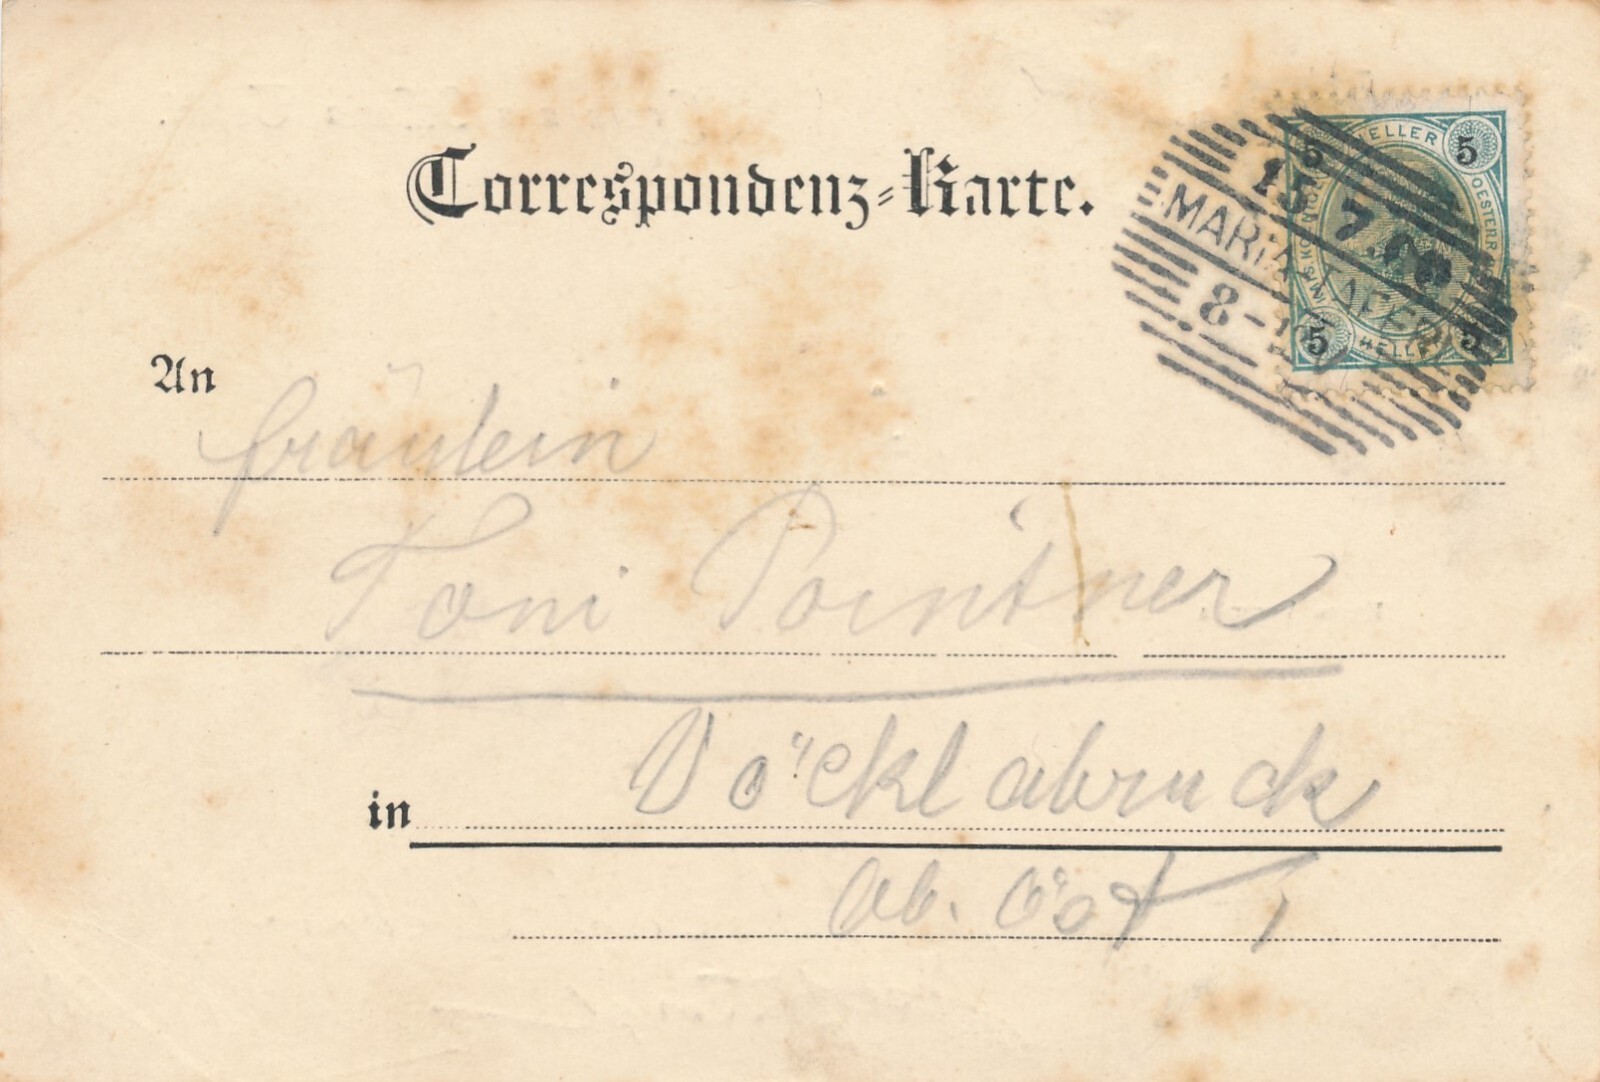 Correspondenz-Karte.
5 HELLER 5
OESTERR
MARIA TAFERL
15 7
8-
5 HELLER 5
An
Fräulein
Toni Pointner
in Vöcklabruck
Ob. Öst.